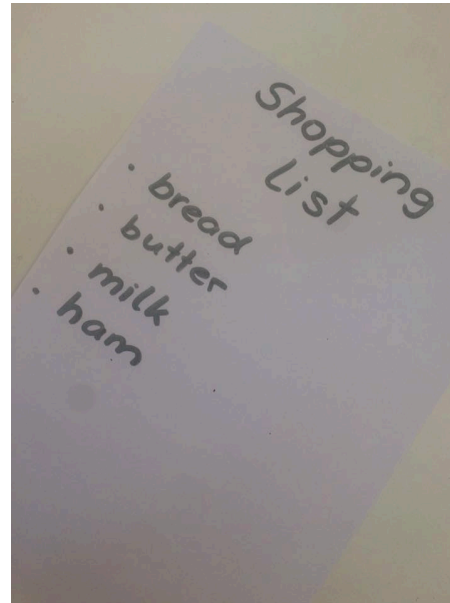 Shopping
List
· bread
· butter
· milk
· ham